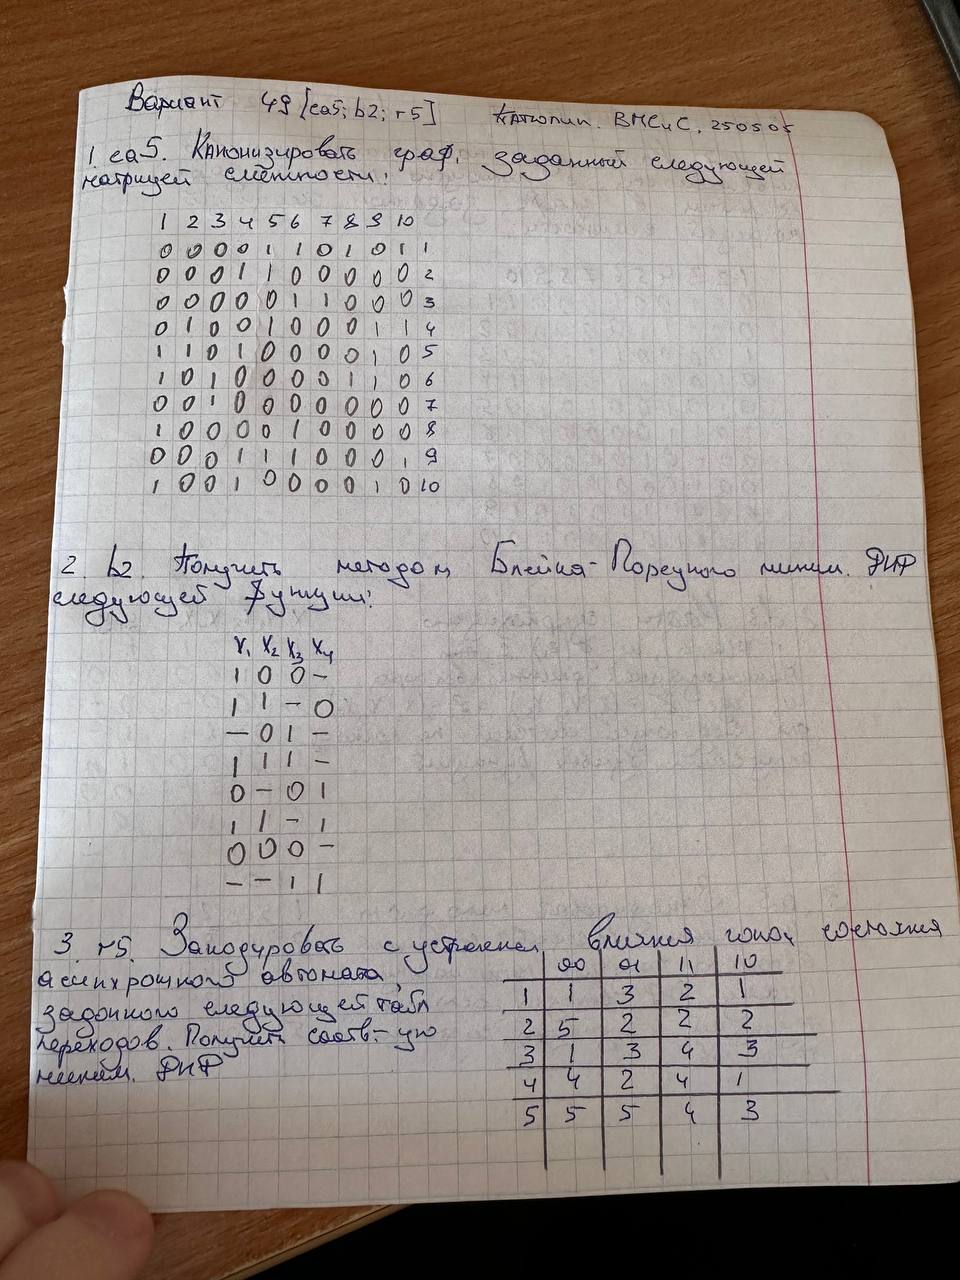 Вариант 49 [ca5; b2; r5] Катюпин. ВМСиС, 250505
1. ca5. Канонизировать граф, заданный следующей
матрицей смежности:
1 2 3 4 5 6 7 8 9 10
0 0 0 0 1 1 0 1 0 1 1
0 0 0 1 1 0 0 0 0 0 2
0 0 0 0 0 1 1 0 0 0 3
0 1 0 0 1 0 0 0 1 1 4
1 1 0 1 0 0 0 0 1 0 5
1 0 1 0 0 0 0 1 1 0 6
0 0 1 0 0 0 0 0 0 0 7
1 0 0 0 0 1 0 0 0 0 8
0 0 0 1 1 1 0 0 0 1 9
1 0 0 1 0 0 0 0 1 0 10
2. b2. Получить методом Блейка-Порецкого миним. ДНФ
следующей функции:
X1 X2 X3 X4
1 0 0 -
1 1 - 0
- 0 1 -
1 1 1 -
0 - 0 1
1 1 - 1
0 0 0 -
- - 1 1
3. r5. Закодировать с устранен. влияния гонок состояния
асинхронного автомата,
заданного следующей табл
переходов. Получить соотв.-ую
миним. ДНФ
00 01 11 10
1 1 3 2 1
2 5 2 2 2
3 1 3 4 3
4 4 2 4 1
5 5 5 4 3